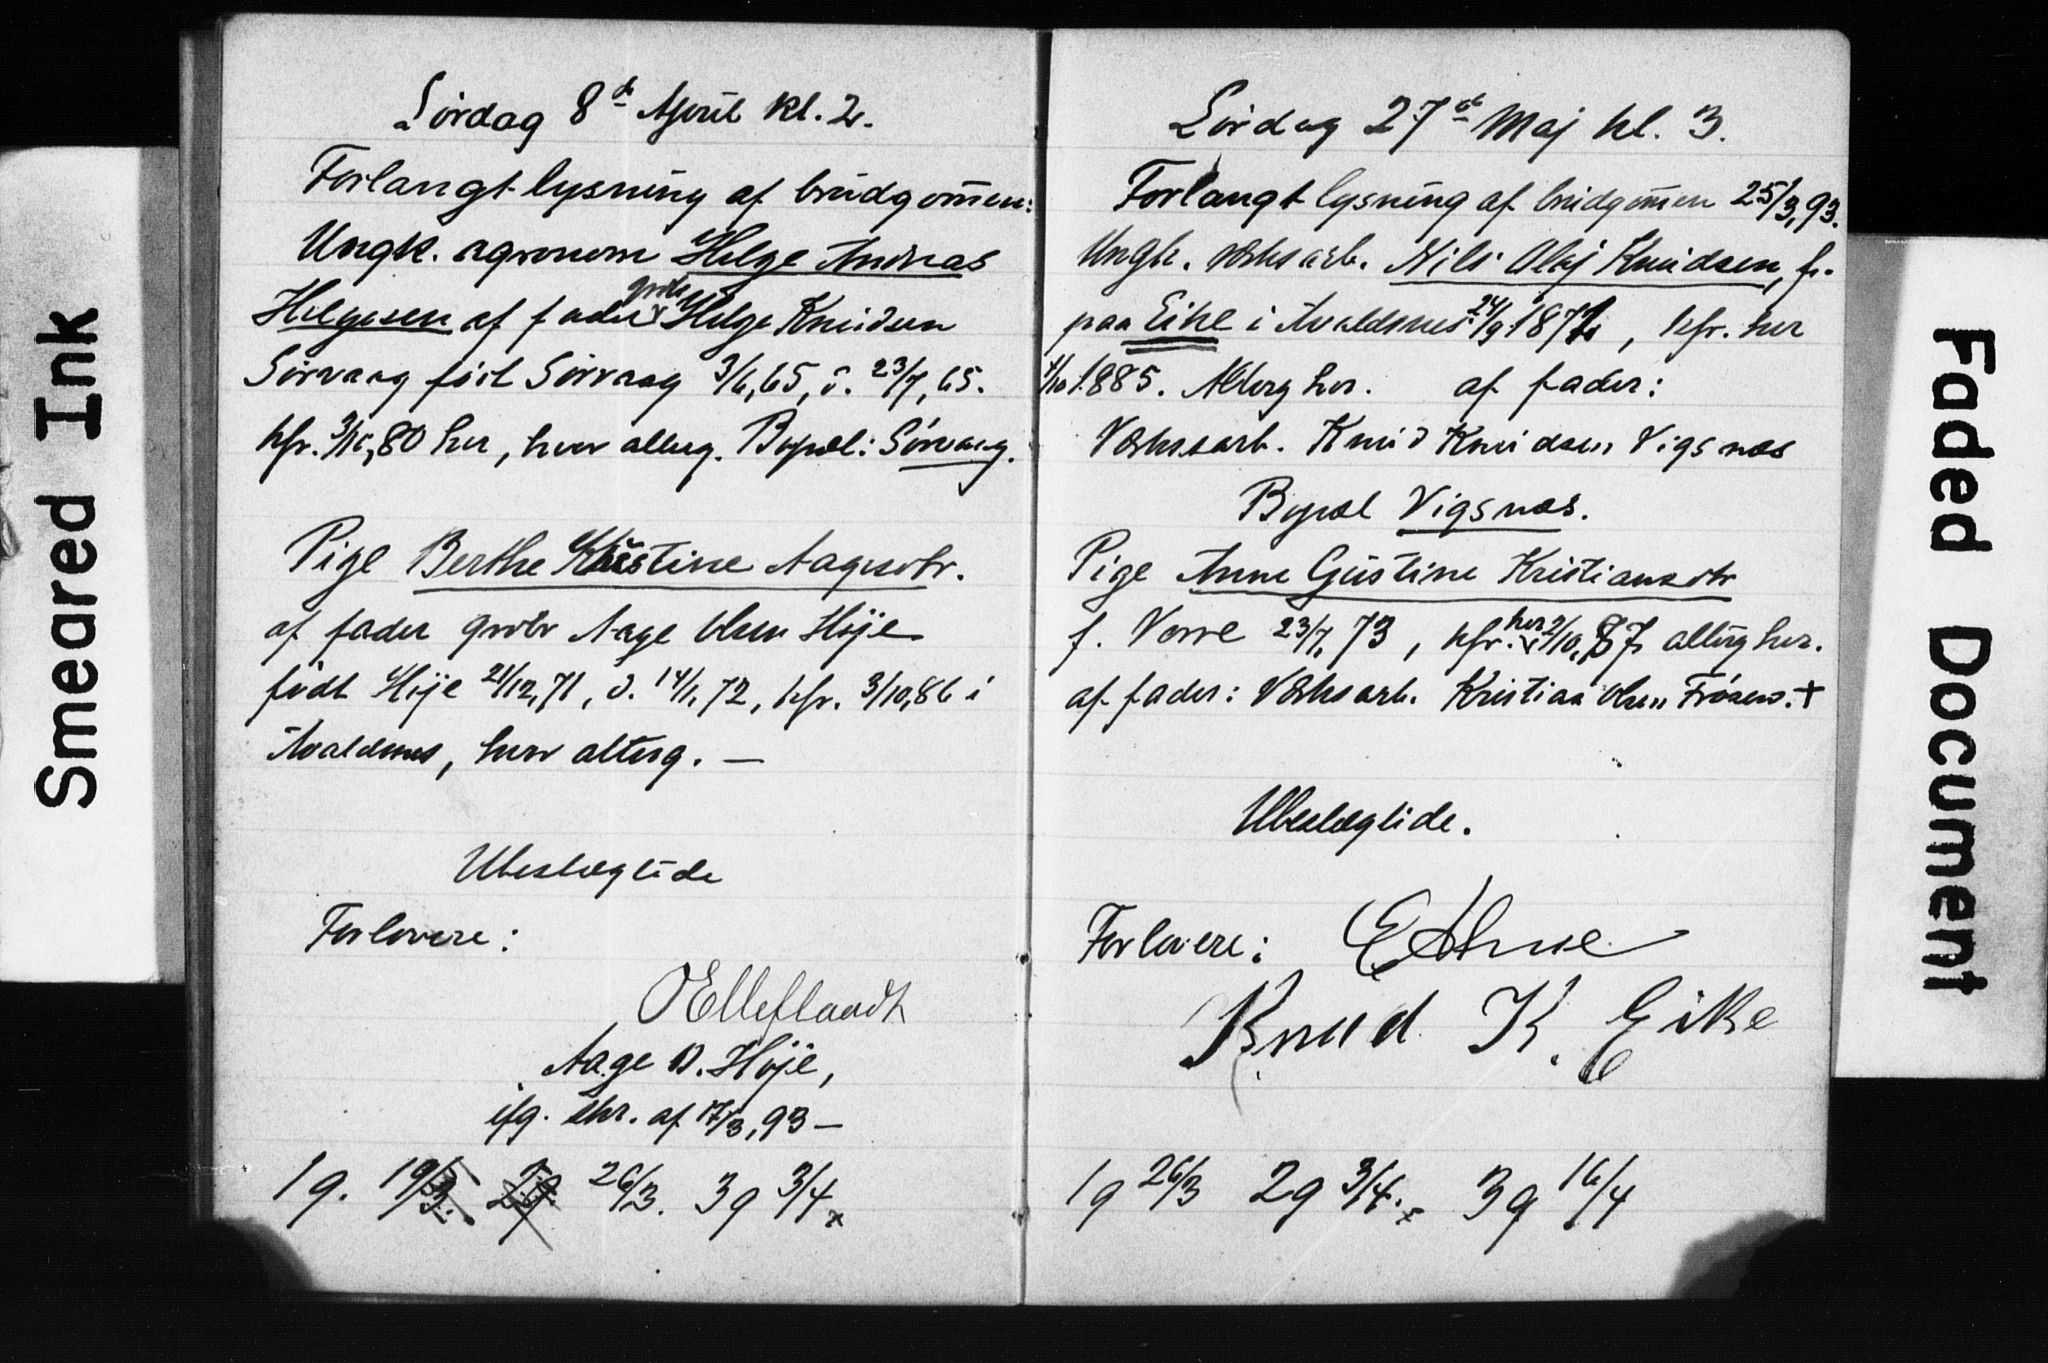 Smeared Ink
Lördag 8de April kl. 2.
Forlangt lysning af brudgom̄en:
Ungk. agronom Helge Andreas
Helgesen af fader grdbr Helge Knudsen
Sörvaag föit Sörvaag 3/6,65, d. 23/7,65.
kfr. 3/10,80 her, hvor alterg. Bopæl: Sörvaag.
Pige Berthe Kristine Aagesdtr.
af fader grdbr Aage Olsen Höje
födt Höje 21/12,71, d. 14/1,72, kfr. 3/10,86 i
Avaldsnes, hvor alterg. —
Ubeslægtede
Forlovere:
O Elleflaadt
Aage O. Höje,
ifg. skr. af 17/3,93 —
1g. 19/3. 2g. 26/3. 3g 3/4
Lördag 27de Maj kl. 3.
Forlangt lysning af brudgom̄en 25/3,93.
Ungk. Værksarb. Nils Olaj Knudsen, f.
paa Eike i Avaldsnes 24/9 1871, kfr. her
4/10 1885. Alterg her. af fader:
Værksarb. Knud Knudsen Vigsnæs
Bopæl Vigsnæs.
Pige Anne Gustine Kristiansdtr
f. Vorre 23/7,73, kfr. her 2/10,87 alterg her.
af fader: Værksarb. Kristian Olsen +
Ubeslægtede.
Forlovere:
Knud K. Eike
1g 26/3 2g 3/4. 3g 16/4
Faded Document